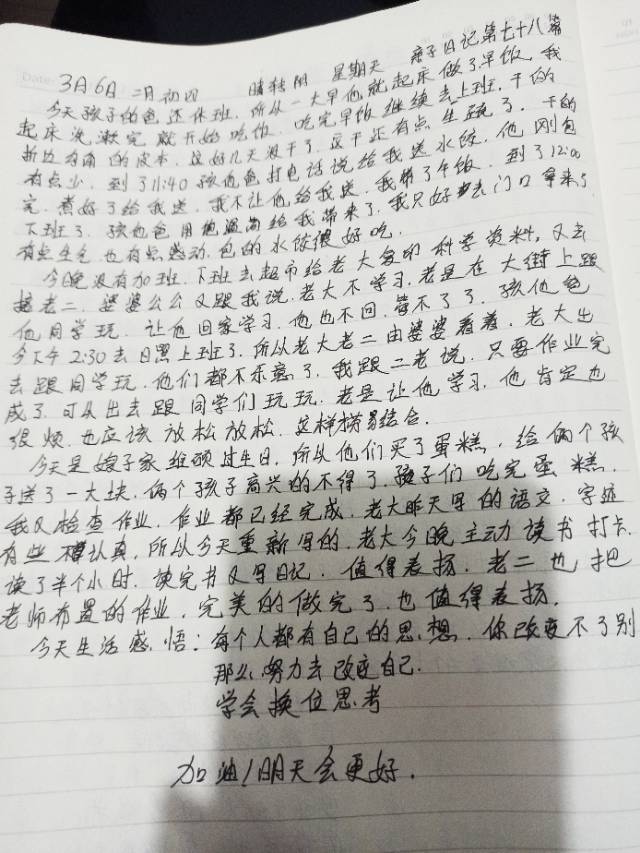 Date:
3月6日 二月初四 晴转阴 星期天 亲子日记第七十八篇
今天孩子的爸还休班.所从一大早他就起床做了早饭.我
起床洗漱完就开始吃饭.吃完早饭继续去上班.干的
的皮本.这好几天没干了.这干还有点生疏了.干的
有点少.到了11:40孩他爸打电话说给我送水饺.他刚包
完.煮好了给我送.我不让他给我送.我带了午饭.到了12:00
下班了.孩他爸用保温桶给我带来了.我只好去门口拿来了
有点生气.也有点感动.包的水饺很好吃.
今晚没有加班.下班去超市给老大买的科学资料.又去
接老二.婆婆公公又跟我说.老大不学习.老是在大街上跟
他同学玩.让他回家学习.他也不回.管不了了.孩他爸
今下午2:30去日照上班了.所从老大老二由婆婆看着.老大出
去跟同学玩.他们都不乐意了.我跟二老说.只要作业完
成了.可从出去跟同学们玩玩.老是让他学习.他肯定也
很烦.也应该放松放松.这样劳易结合.
今天是嫂子家组硕过生日.所从他们买了蛋糕.给俩个孩
子送了一大块.俩个孩子高兴的不得了.孩子们吃完蛋糕.
我又检查作业.作业都已经完成.老大昨天写的语文.字迹
有些认真.所从今天重新写的.老大今晚主动读书打卡.
读了半个小时.读完书又写日记.值得表扬.老二也把
老师布置的作业.完美的做完了.也值得表扬.
今天生活感悟:每个人都有自己的思想.你改变不了别
那么努力去改变自己.
学会换位思考
加油!明天会更好.